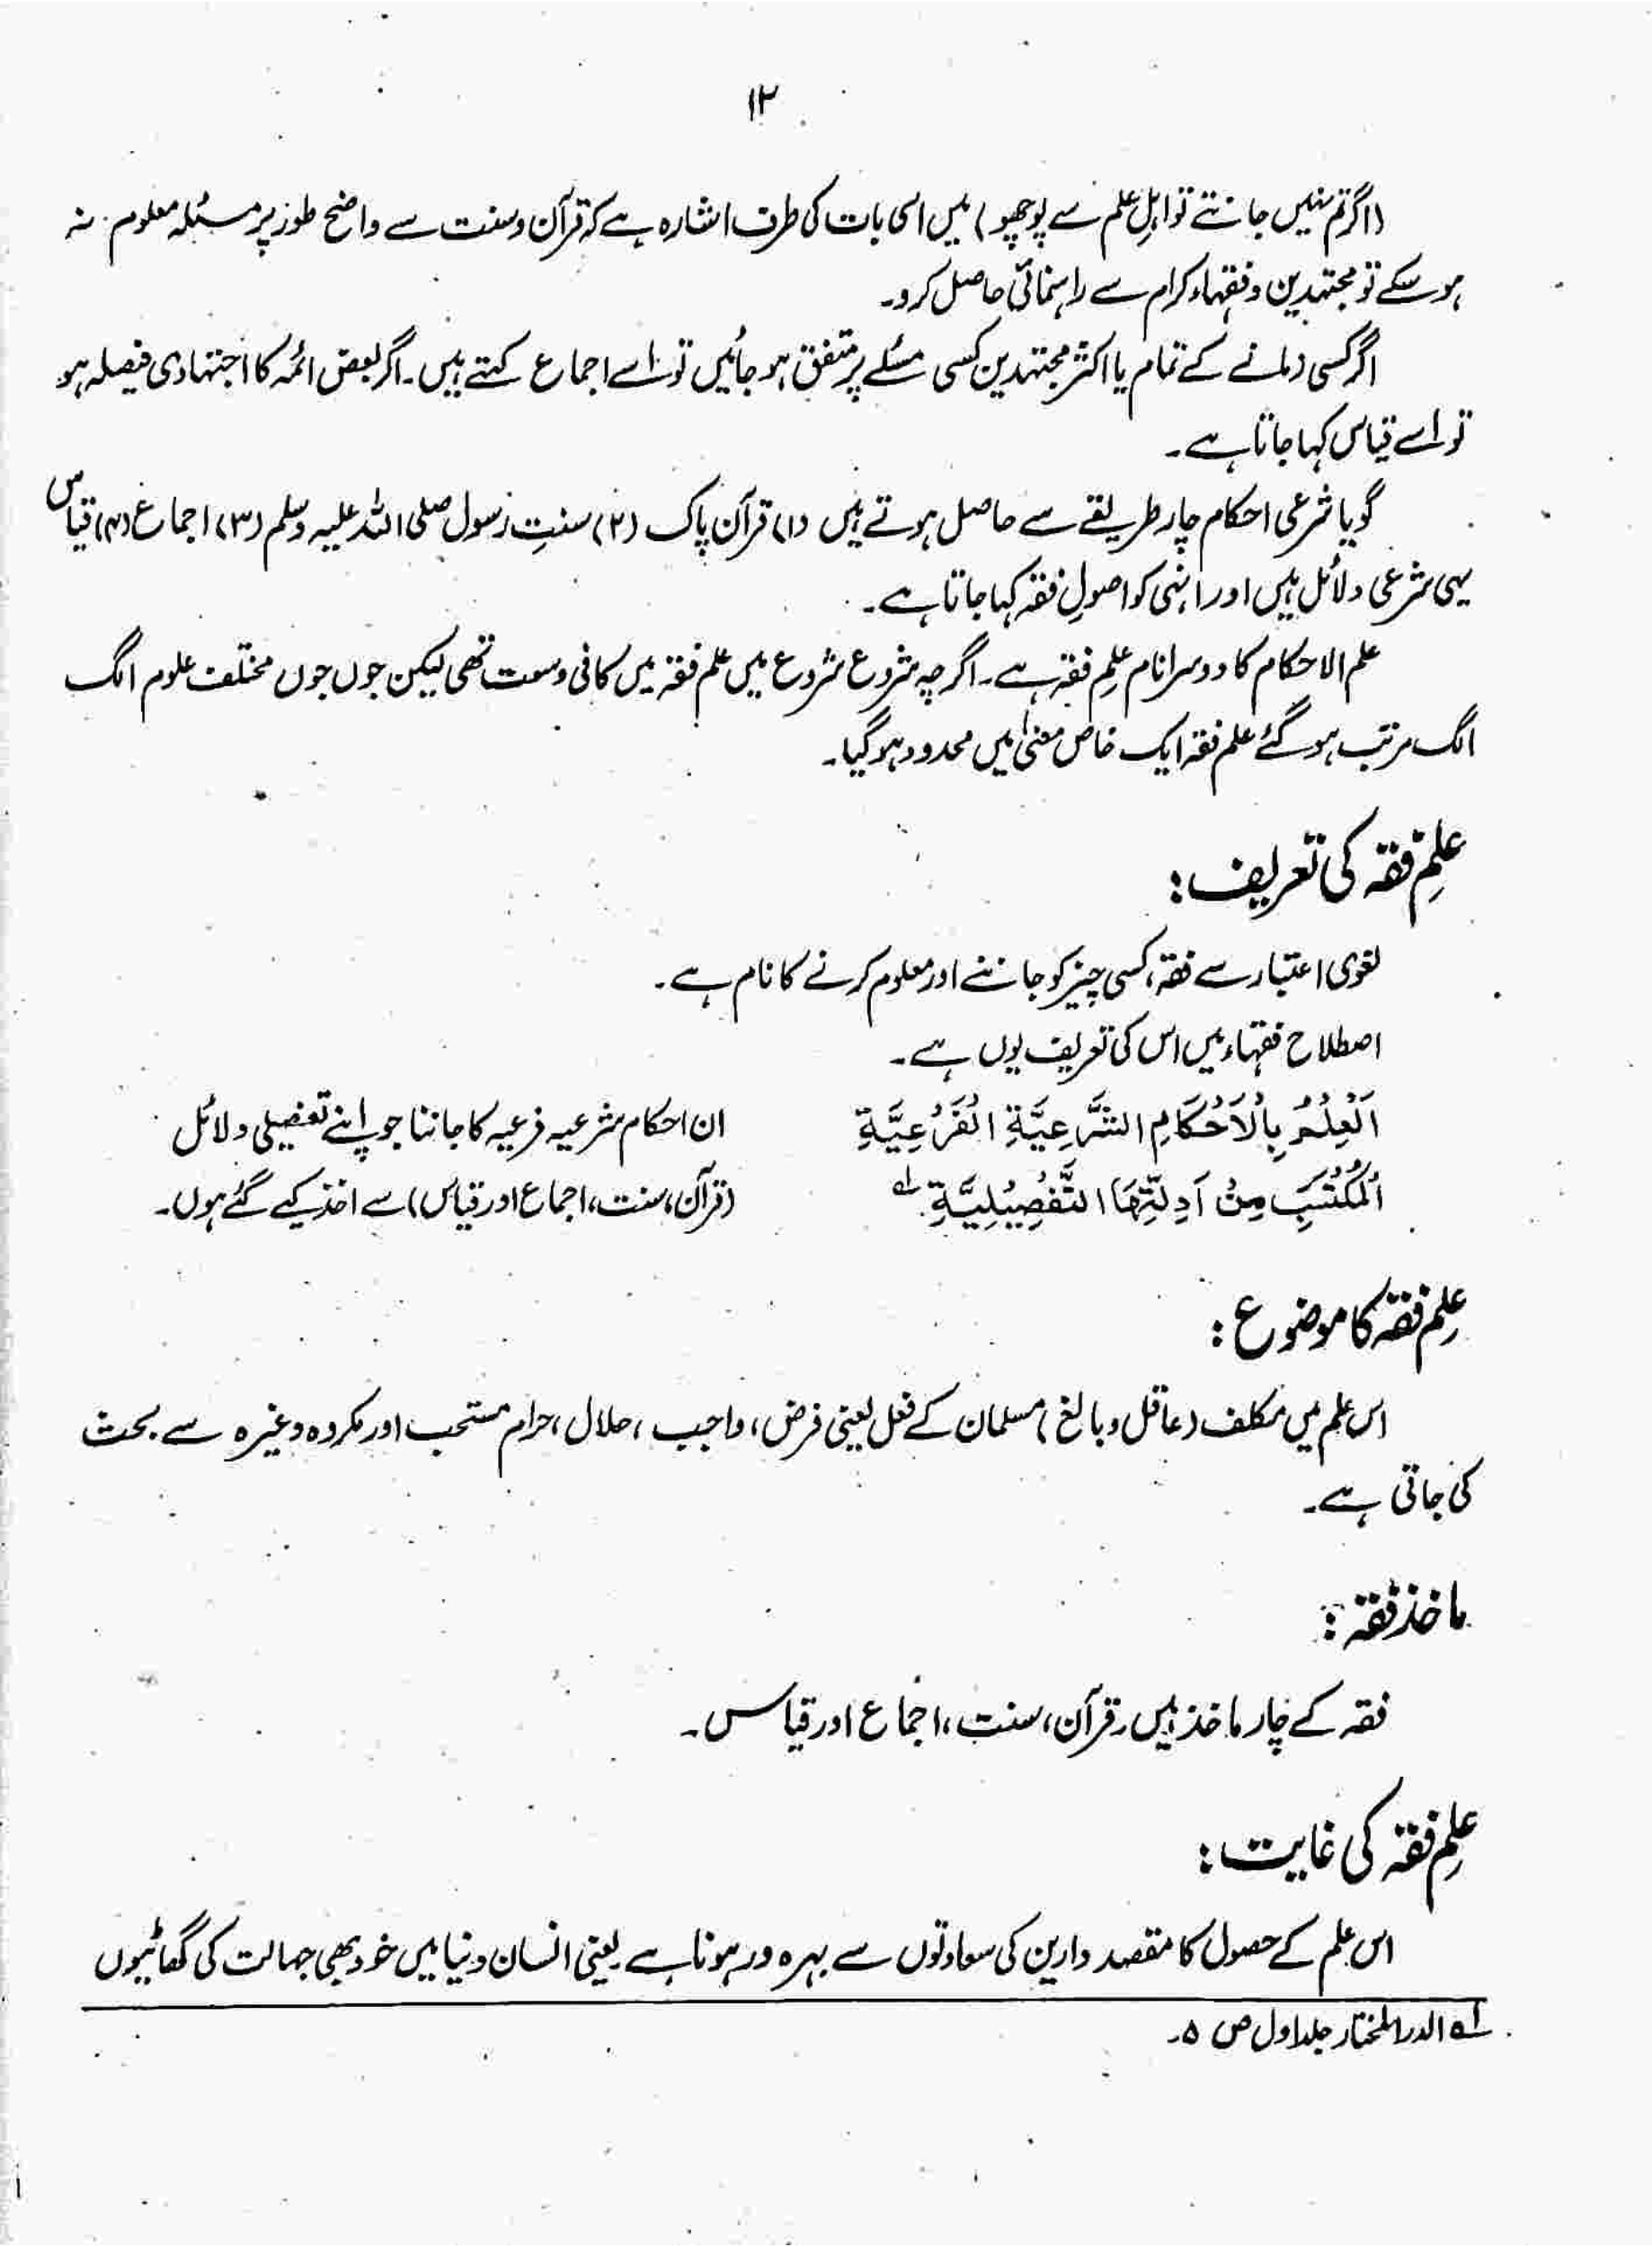 ۱۲
(اگر تم نہیں جانتے تو اہلِ علم سے پوچھو) میں اسی بات کی طرف اشارہ ہے کہ قرآن و سنت سے واضح طور پر مسئلہ معلوم نہ
ہو سکے تو مجتہدین و فقہاء کرام سے راہنمائی حاصل کرو۔
اگر کسی زمانے کے تمام یا اکثر مجتہدین کسی مسئلے پر متفق ہو جائیں تو اسے اجماع کہتے ہیں۔ اگر بعض ائمہ کا اجتہادی فیصلہ ہو
تو اسے قیاس کہا جاتا ہے۔
گویا شرعی احکام چار طریقے سے حاصل ہوتے ہیں (۱) قرآن پاک (۲) سنتِ رسول صلی اللہ علیہ وسلم (۳) اجماع (۴) قیاس
یہی شرعی دلائل ہیں اور انہی کو اصولِ فقہ کہا جاتا ہے۔
علم الاحکام کا دوسرا نام علمِ فقہ ہے۔ اگرچہ شروع شروع میں علم فقہ میں کافی وسعت تھی لیکن جوں جوں مختلف علوم الگ
الگ مرتب ہو گئے علم فقہ ایک خاص معنیٰ میں محدود ہو گیا۔
علمِ فقہ کی تعریف:
لغوی اعتبار سے فقہ، کسی چیز کو جاننے اور معلوم کرنے کا نام ہے۔
اصطلاح فقہاء میں اس کی تعریف یوں ہے۔
اَلْعِلْمُ بِالْاَحْكَامِ الشَّرَعِيَّةِ الْفَرْعِيَّةِ ان احکام شرعیہ فرعیہ کا جاننا جو اپنے تفصیلی دلائل
اَلْمُكْتَسَبِ مِنْ اَدِلَّتِهَا التَّفْصِيْلِيَّةِ۔ ۱؎ (قرآن، سنت، اجماع اور قیاس) سے اخذ کیے گئے ہوں۔
علِم فقہ کا موضوع:
اس علم میں مکلف (عاقل و بالغ) مسلمان کے فعل یعنی فرض، واجب، حلال، حرام مستحب اور مکروہ وغیرہ سے بحث
کی جاتی ہے۔
ماخذ فقہ:
فقہ کے چار ماخذ ہیں۔ قرآن، سنت، اجماع اور قیاس۔
علِم فقہ کی غایت:
اس علم کے حصول کا مقصد دارین کی سعادتوں سے بہرہ ور ہونا ہے یعنی انسان دنیا میں خود بھی جہالت کی گھاٹیوں
۱؎ الدر المختار جلد اول ص ۵۔